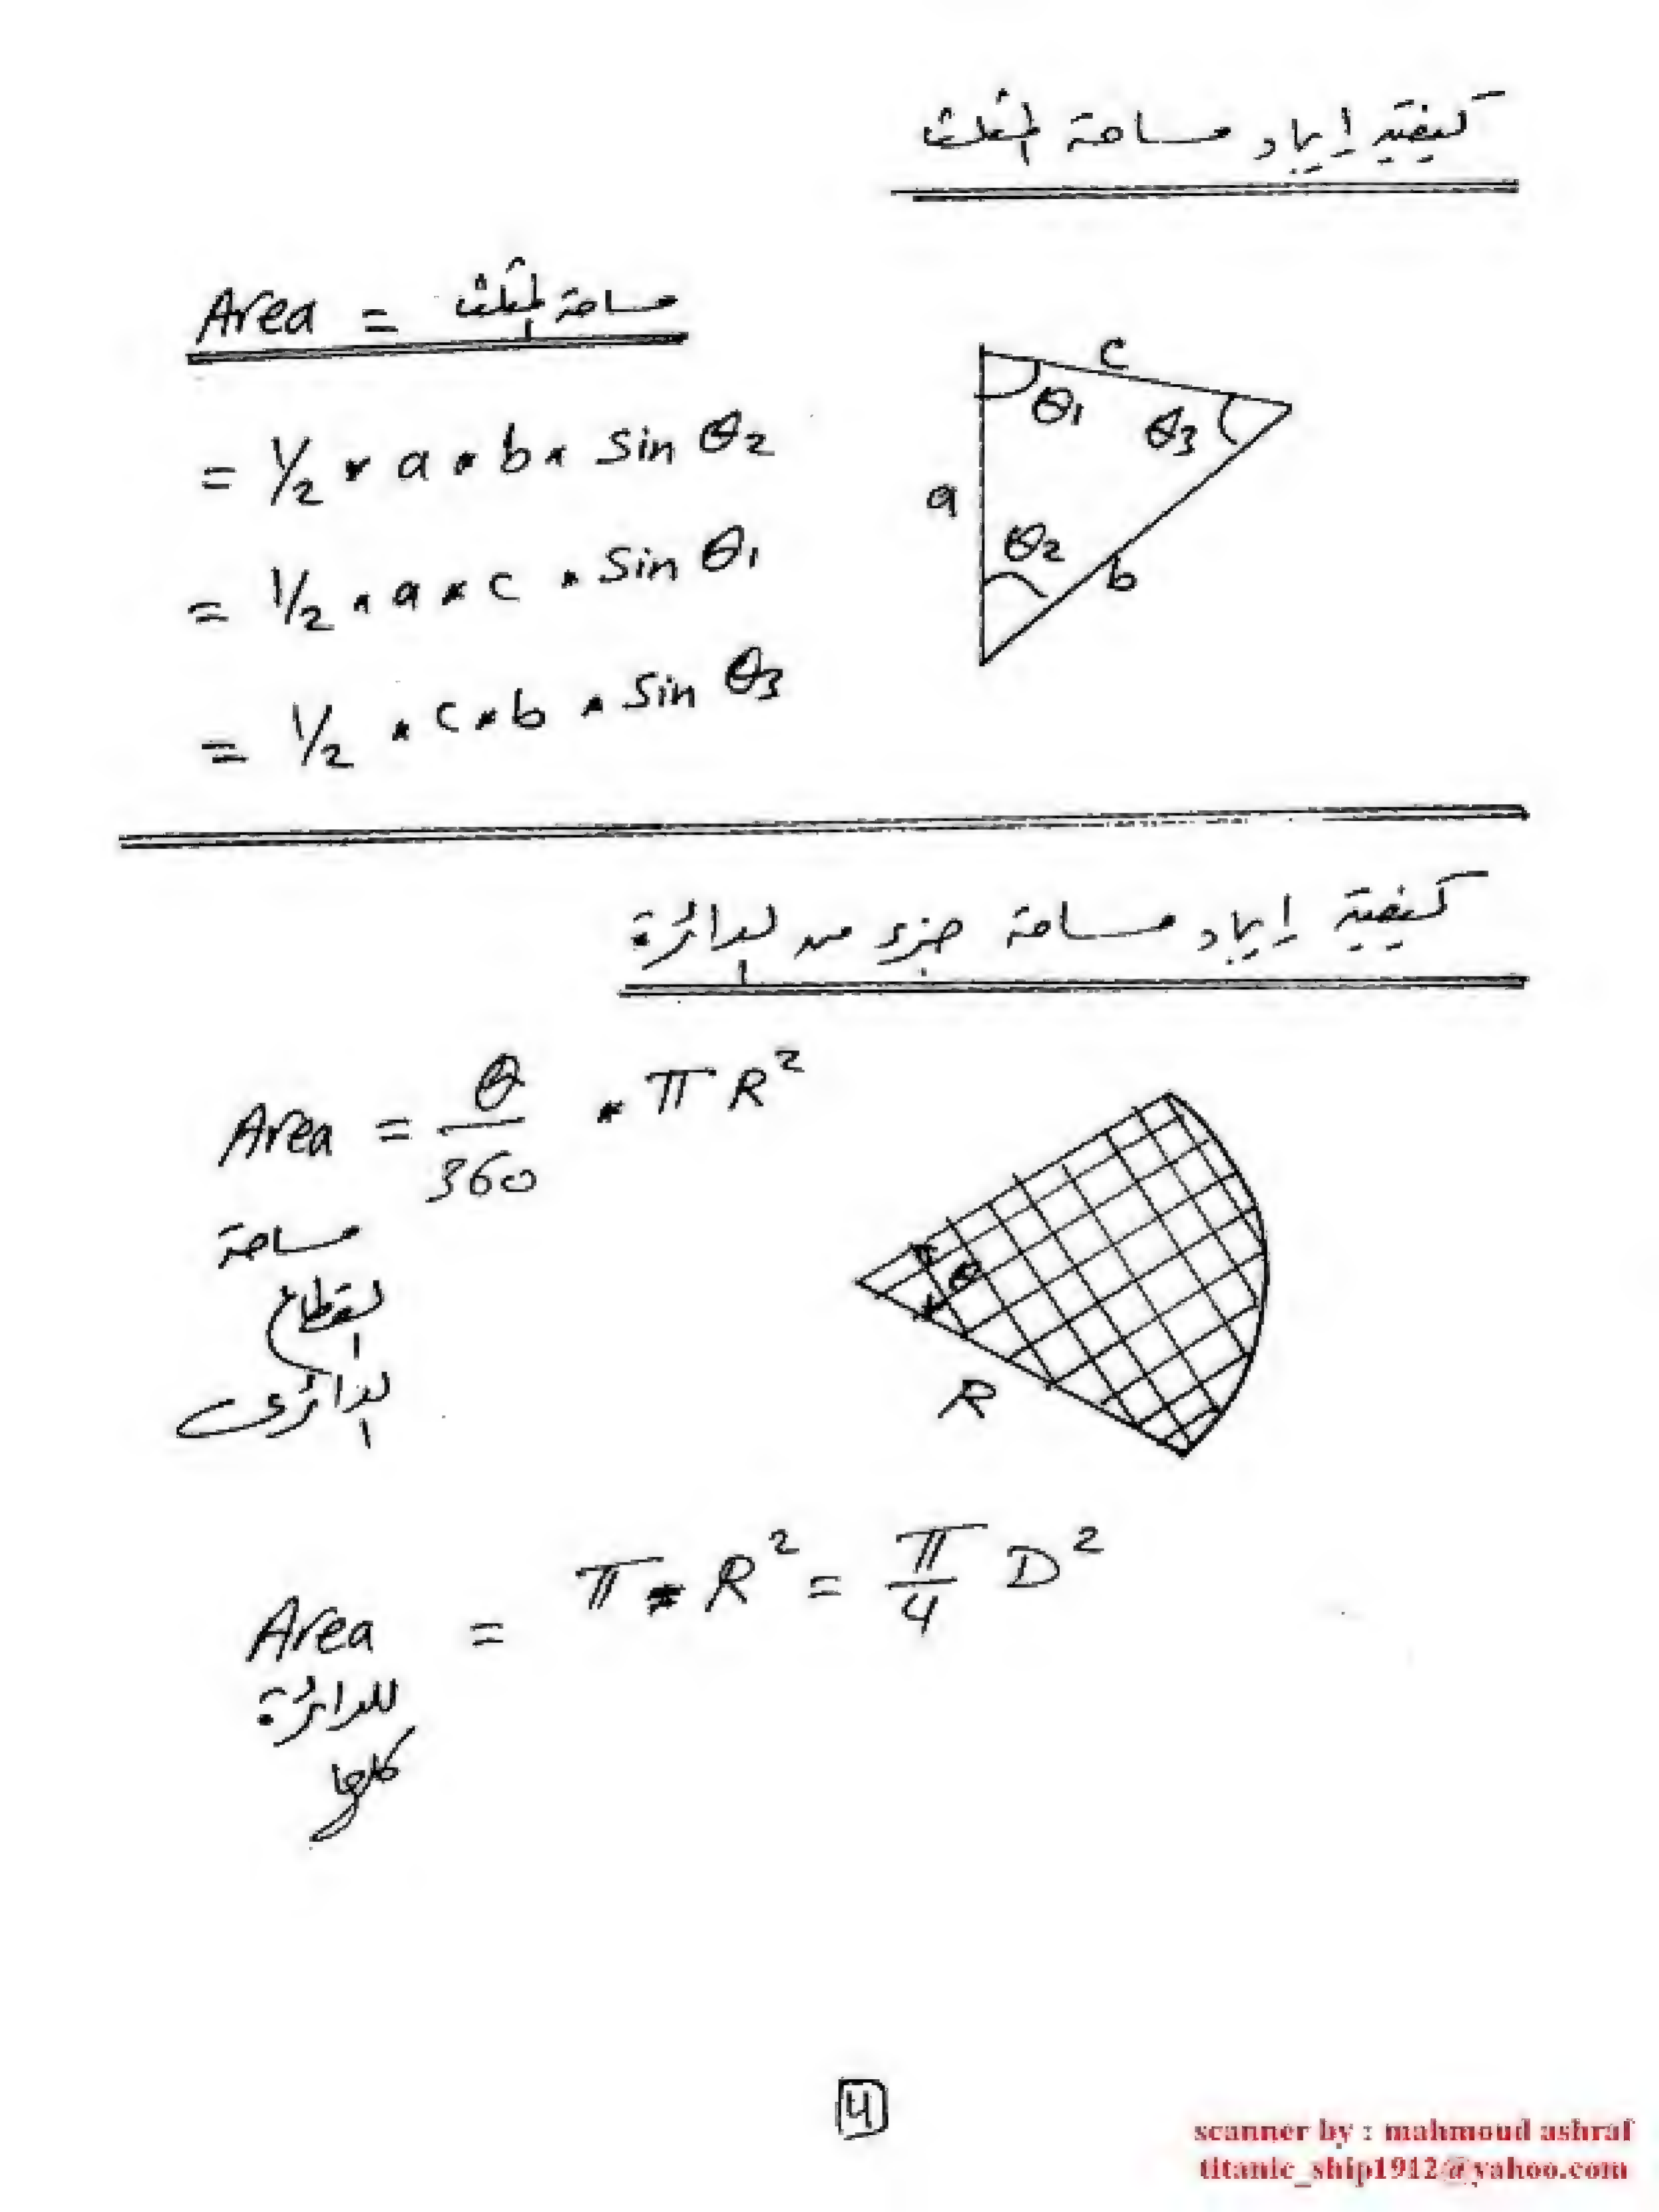 كيفية إيجاد مساحة المثلث
Area = مساحة المثلث
= 1/2 * a * b * sin θ2
= 1/2 * a * c * sin θ1
= 1/2 * c * b * sin θ3
c
θ1
θ3
a
θ2
b
كيفية إيجاد مساحة جزء من الدائرة
Area = θ/360 * π R²
مساحة
القطاع
الدائرى
θ
R
Area = π * R² = π/4 D²
للدائرة
كلها
4
scanner by : mahmoud ashraf
titanic_ship1912@yahoo.com